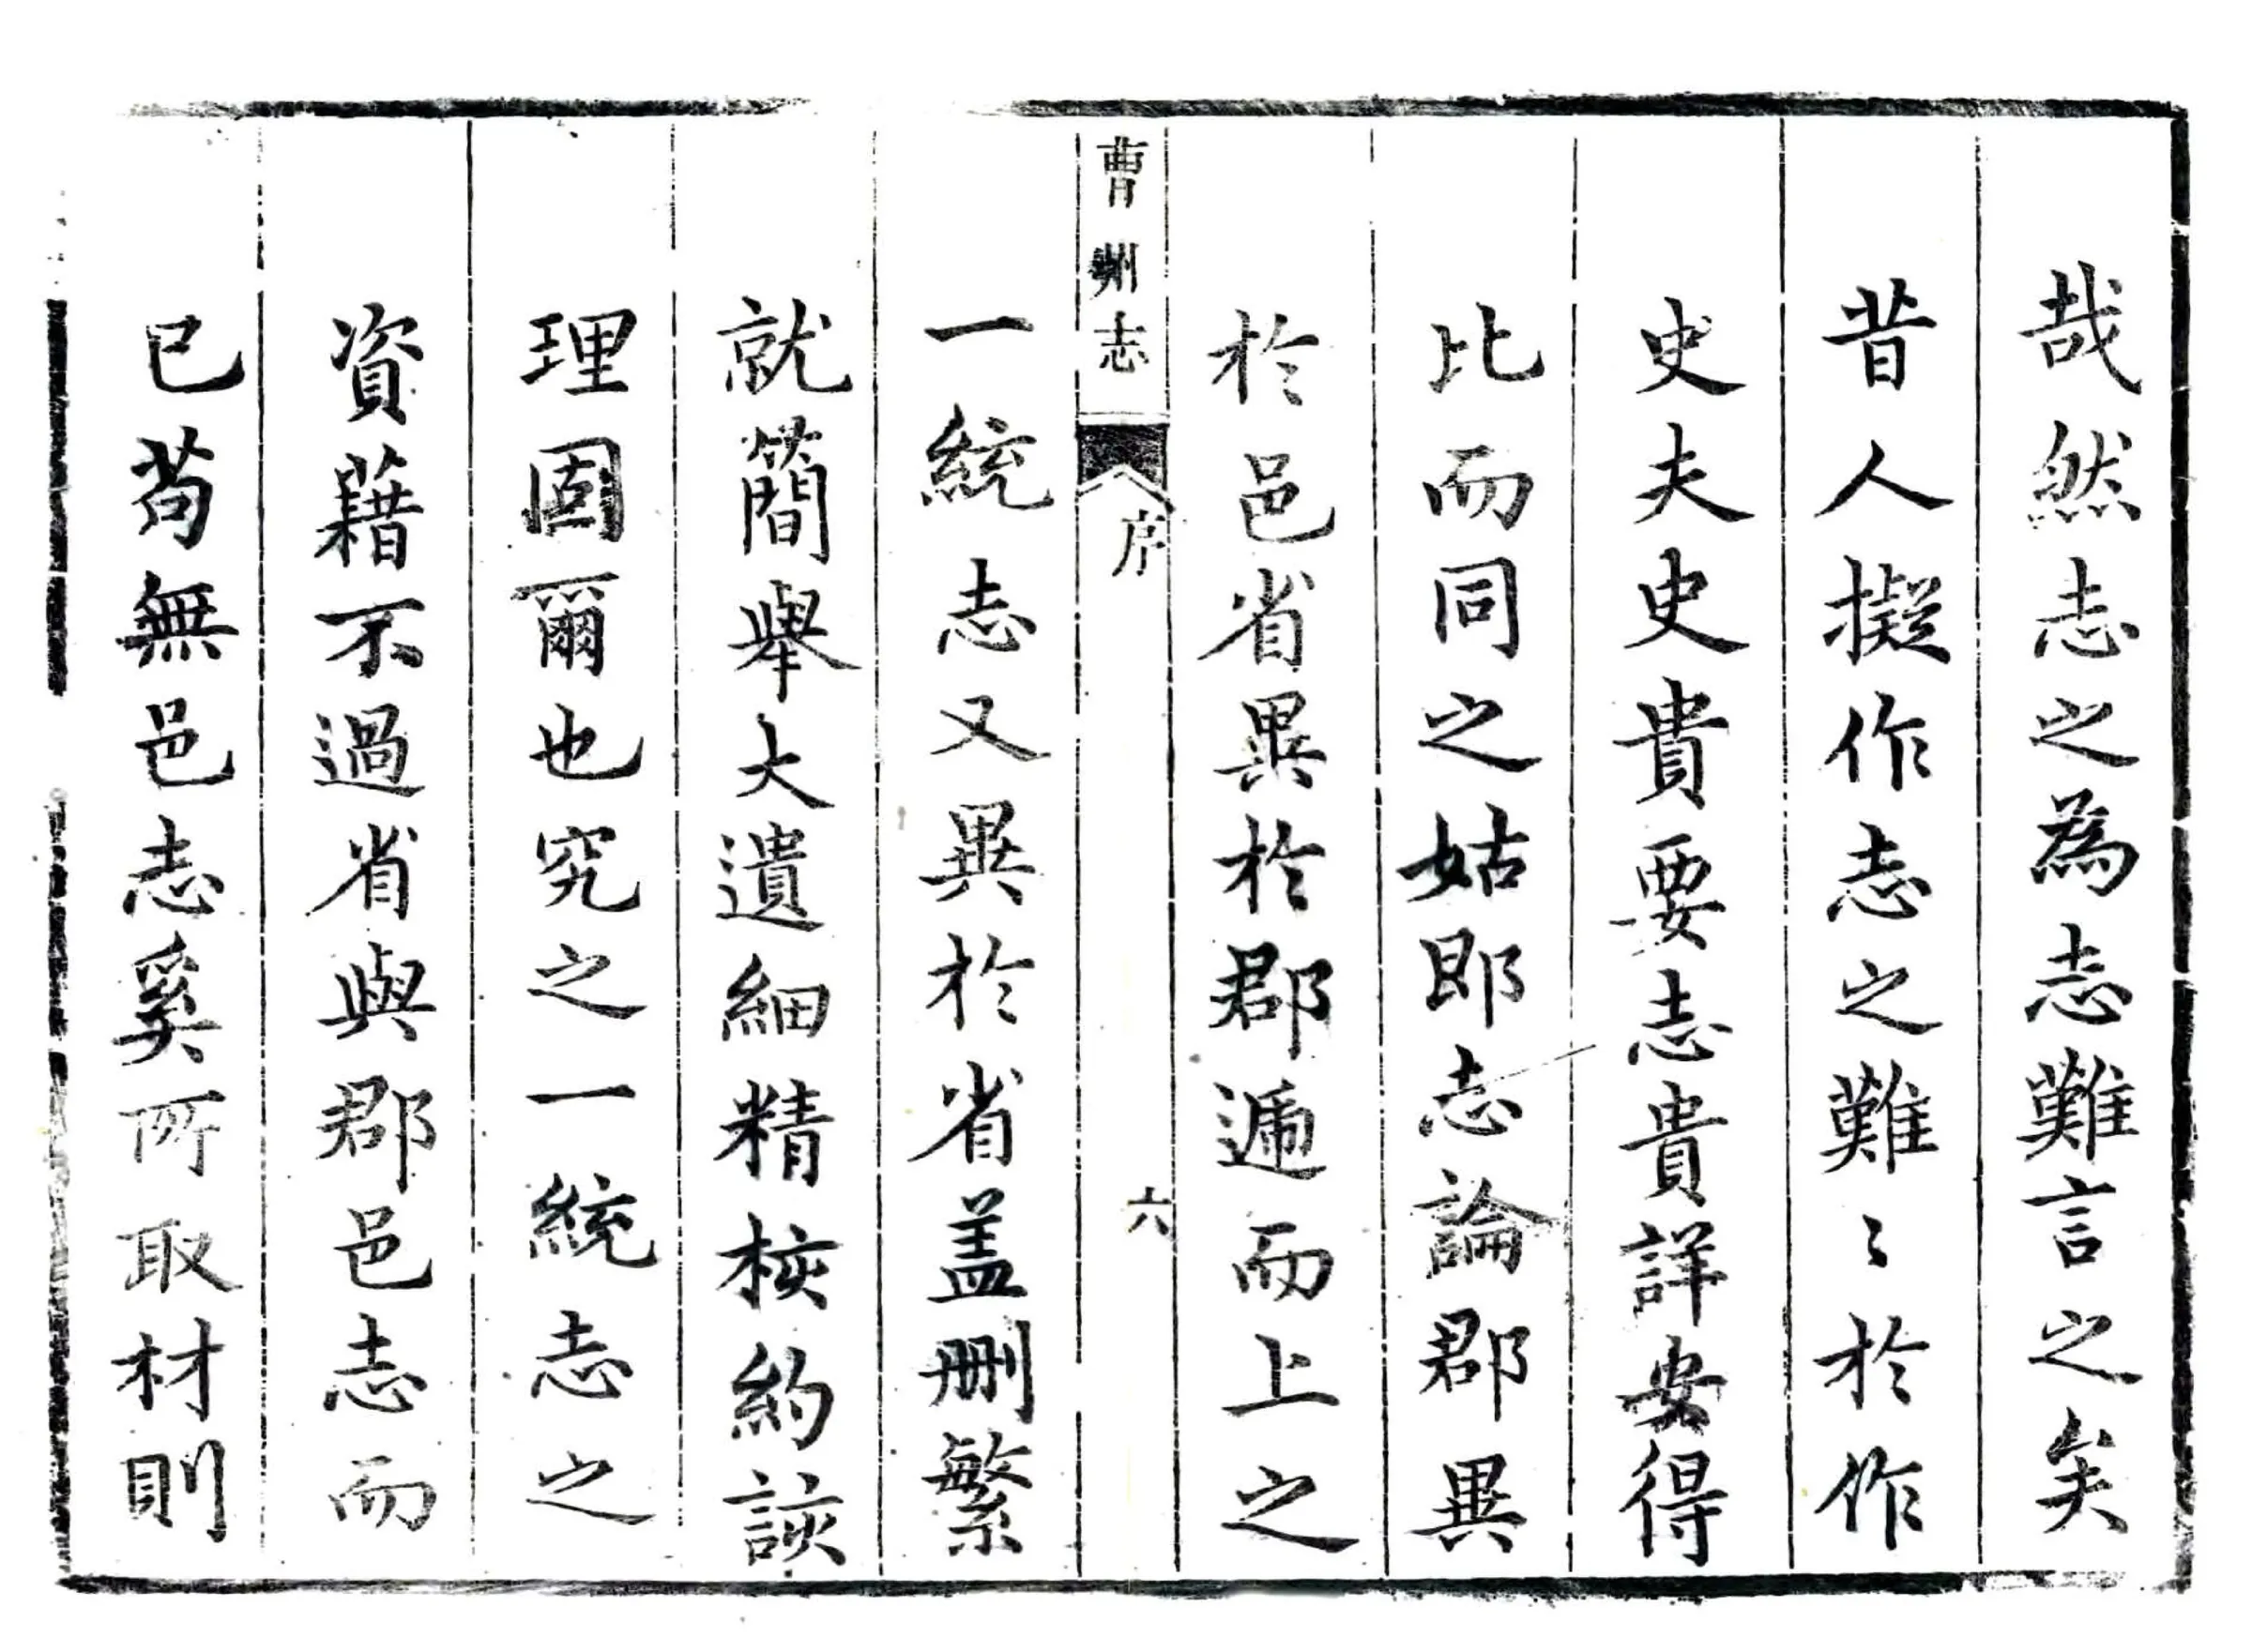 哉然志之為志難言之矣
昔人擬作志之難〻於作
史夫史貴要志貴詳安得
比而同之姑即志論郡異
於邑省異於郡遞而上之
曹州志
序
六
一統志又異於省盖刪繁
就簡舉大遺細精核約該
理固爾也究之一統志之
資藉不過省與郡邑志而
已苟無邑志奚所取材則